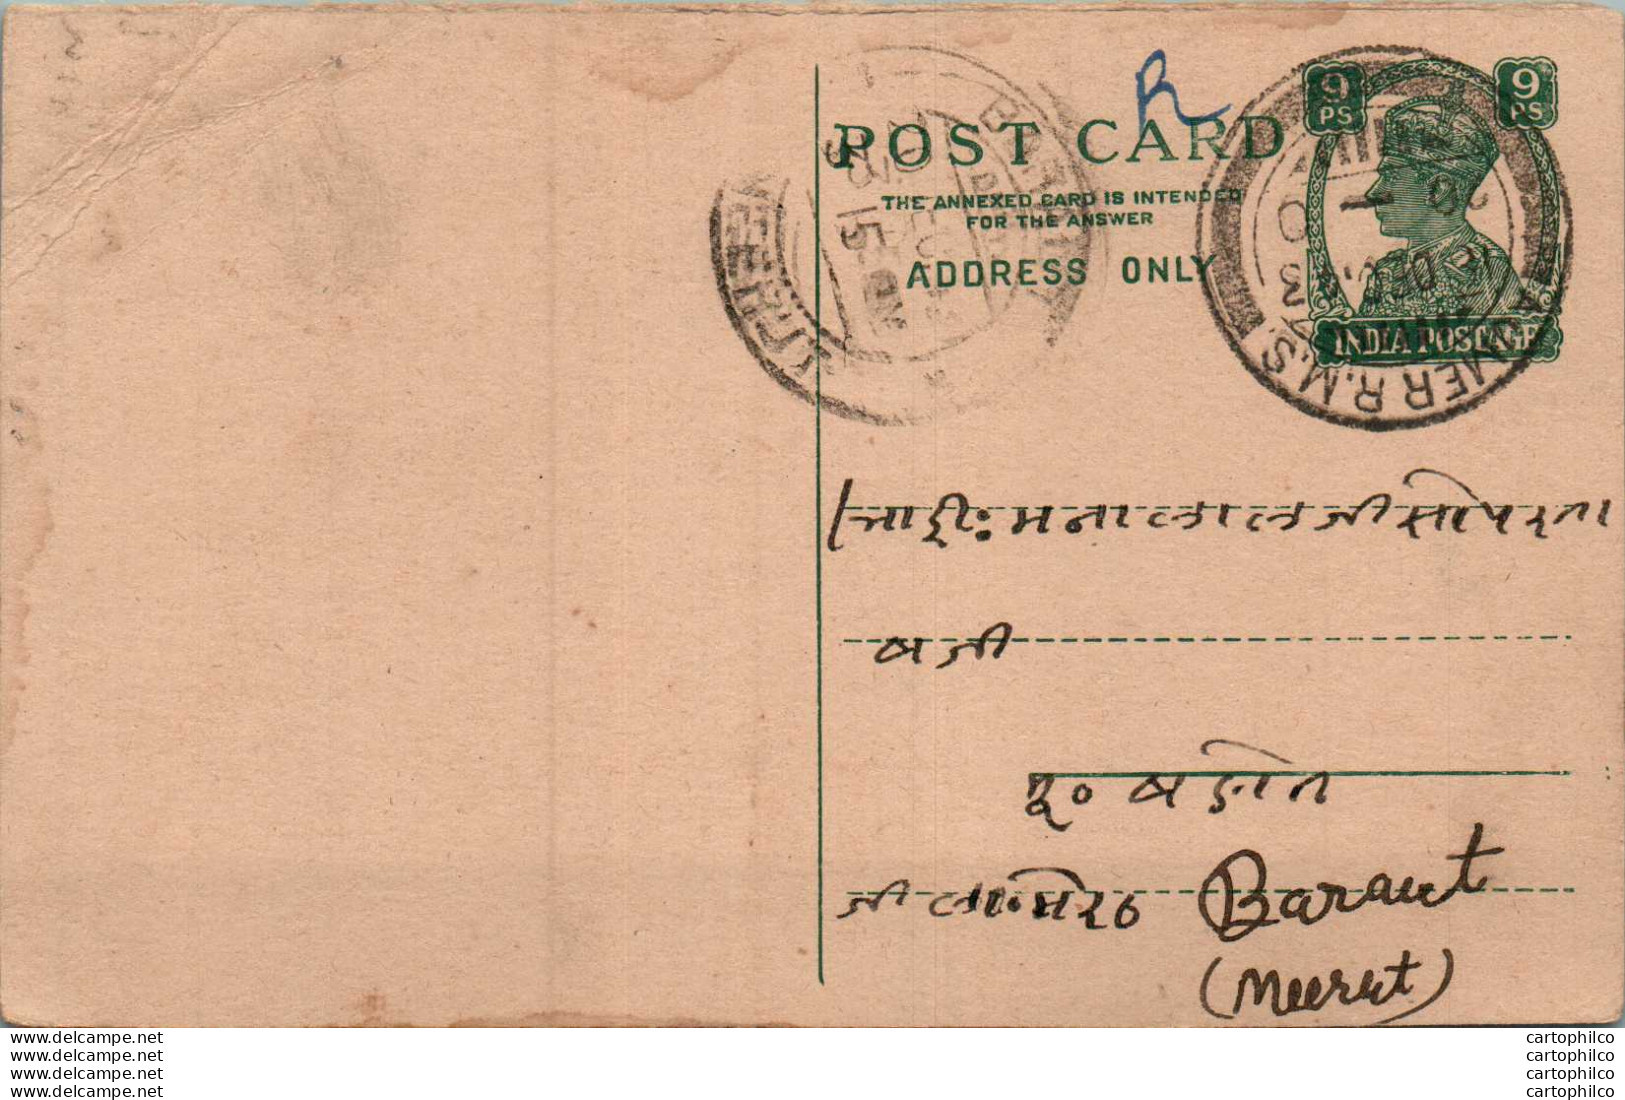 R
POST CARD
THE ANNEXED CARD IS INTENDED
FOR THE ANSWER
ADDRESS ONLY
9 PS
9 PS
INDIA POSTAGE
R.M.S.
MEERUT
15
भाई: मनालालजी सोपरता
बजी
मू० बडोत
जीला: मेरठ Baraut
(Meerut)
www.delcampe.net
www.delcampe.net
www.delcampe.net
www.delcampe.net
cartophilco
cartophilco
cartophilco
cartophilco